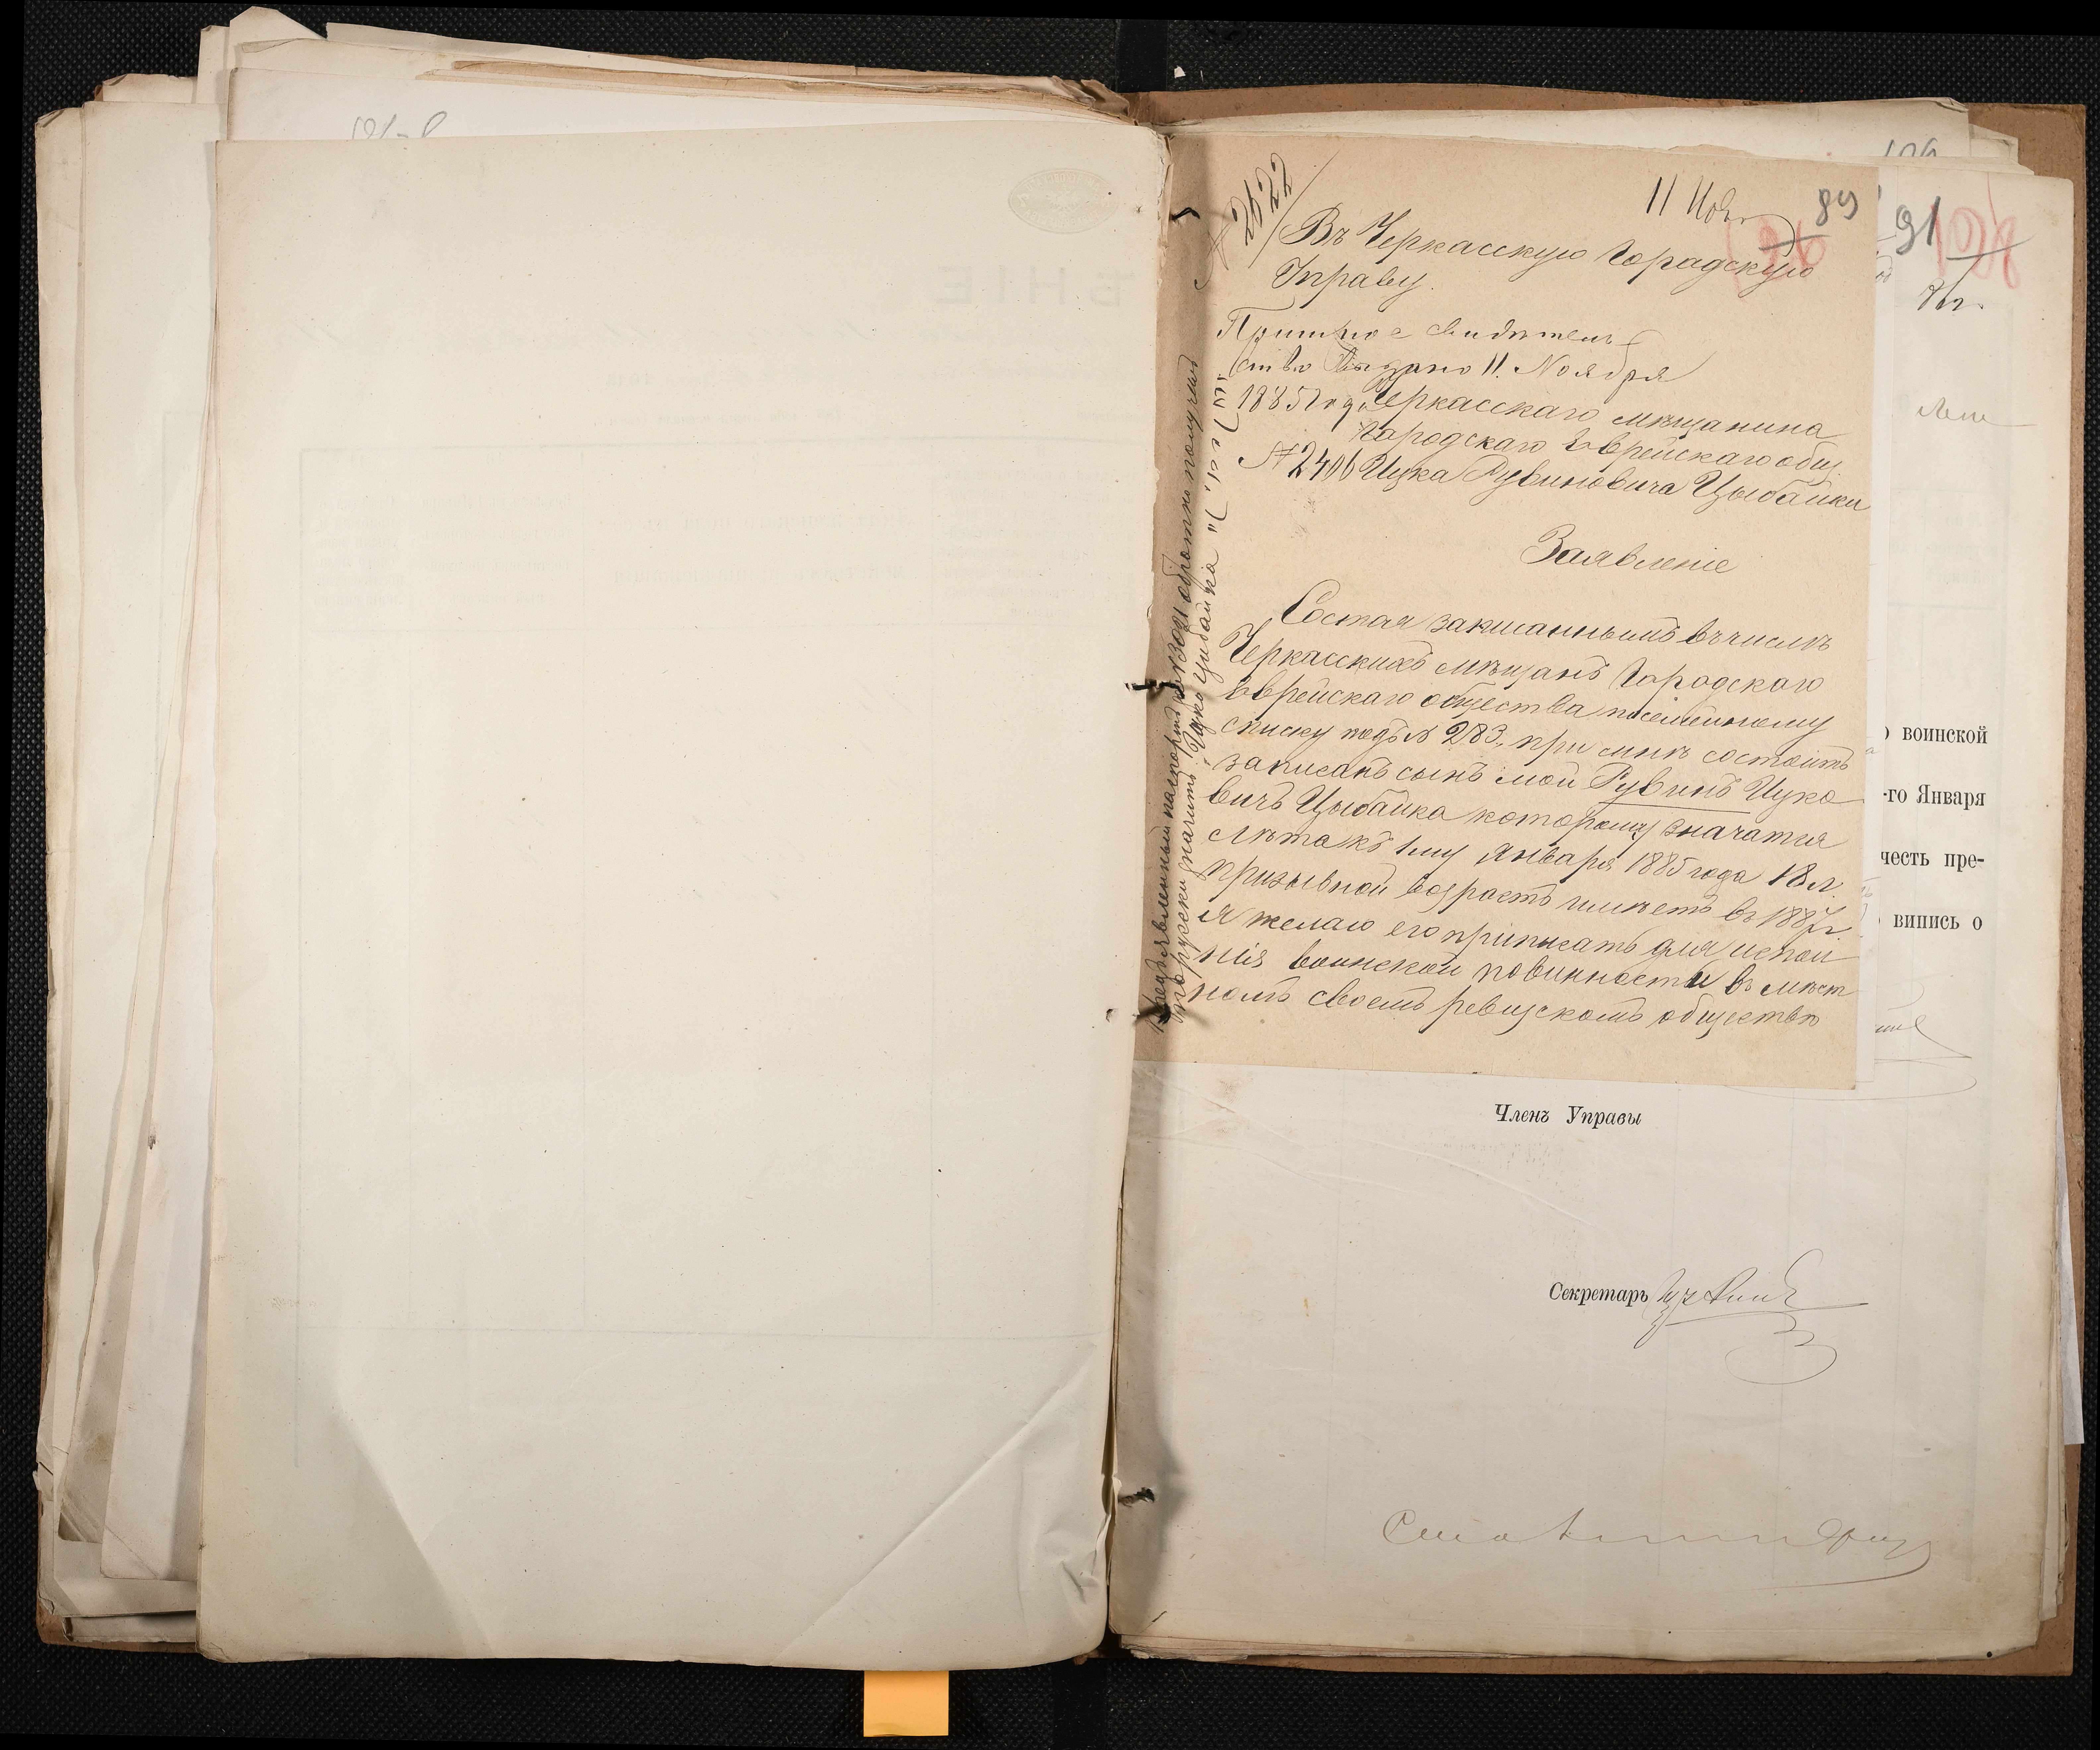 11 Ноя
89
№ 2422
Въ Черкасскую Городскую
Управу.
Приписное свидѣтель
ство Выдано 11. Ноября
1885 года
№ 2406
Черкасскаго мѣщанина
Городскаго Еврейскаго общ.
Ицка Рувиновича Цыбайки
Заявленіе
Состоя записаннымъ въ числѣ
Черкасскихъ мѣщанъ Городскаго
Еврейскаго общества посемейному
списку подъ № 283, при мнѣ состоитъ
записанъ сынъ мой Рувинъ Ицко
вичъ Цыбайка которому значатся
лѣта къ 1му Января 1885 года 18 л
призывной возрастъ имѣетъ въ 1887 г.
Я желаю его приписать для испол
нія воинской повинности въ мѣст
номъ своемъ ревизскомъ обществѣ
Предъявленный паспортъ обратно получилъ
по русски значитъ: Ицко Цибайка
91
108
о воинской
-го Января
честь пре-
випись о
Членъ Управы
Секретарь